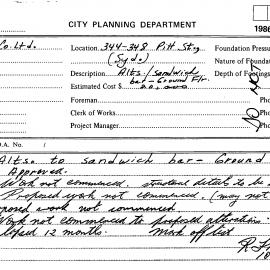 CITY PLANNING DEPARTMENT
1986
Co. Ltd. Location 344-348 Pitt St Foundation Pressu
(Syd.) Nature of Foundat
Description Alts. / sandwich Depth of Footings
bar - Ground Flr.
Estimated Cost $
Foreman Phone
Clerk of Works Phone
Project Manager Pho
D.A. No. /
Alts. to sandwich bar - Ground
Approved.
Work not commenced. details to be
Proposed work not commenced. (may not
posed work not commenced
Work not commenced to proposed alterations.
lapsed 12 months. Mark off